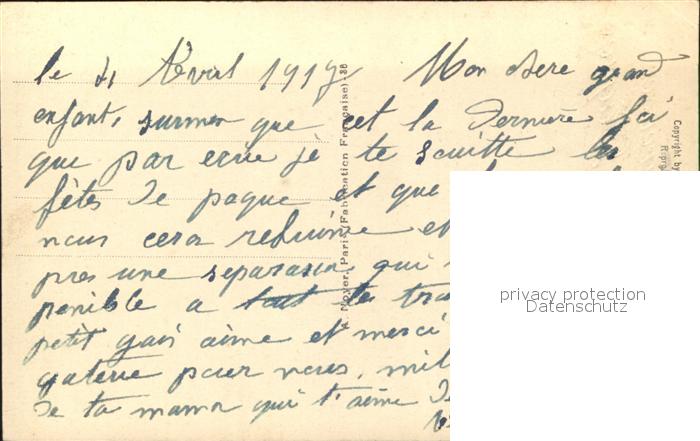 le 21 Avril 1919 Mon chere grand
enfant, surmen que cet la derniere foi
que par ecrie je te souitte les
fêtes de paque et que
nous cera rebuinie et
pres une separasion qui
penible a tout les
petit gars aime et merci
gaterie pour nous, mil
de ta maman qui t'aime de
A. Noyer, Paris (Fabrication Française) 36
Copyright by
Repro
privacy protection
Datenschutz